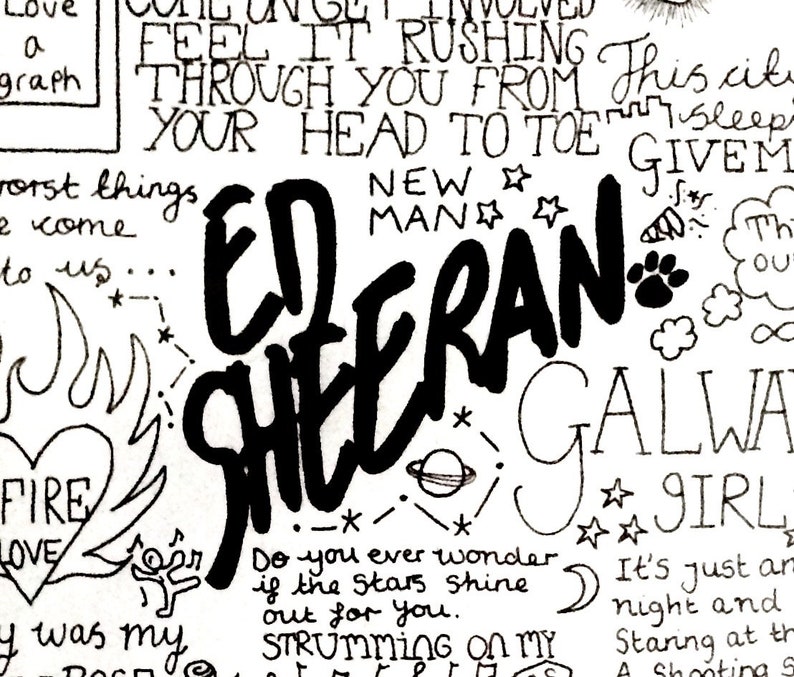 Love
a
graph
COME ON GET INVOLVED
FEEL IT RUSHING
THROUGH YOU FROM
YOUR HEAD TO TOE
This city
sleeps
GIVE M
worst things
come
to us...
NEW
MAN
ED
SHEERAN
Th
ou
GALWA
GIRL
FIRE
LOVE
Do you ever wonder
if the Stars shine
out for you.
STRUMMING ON MY
It's just an
night and
Staring at th
A shooting s
y was my